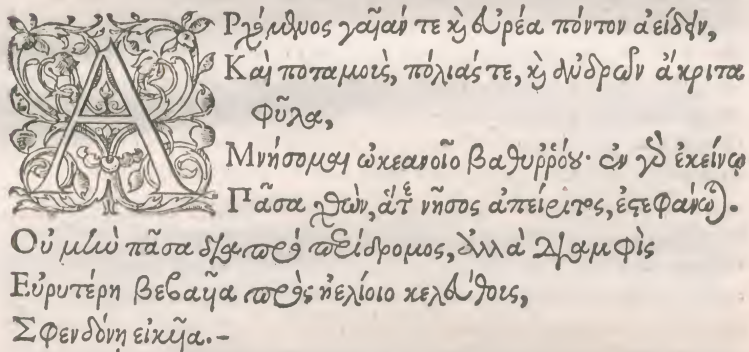 ΑΡχόμενος γαῖάν τε καὶ εὐρέα πόντον ἀείδειν,
Καὶ ποταμοὺς, πόλιάς τε, καὶ ἀνδρῶν ἄκριτα
φῦλα,
Μνήσομαι ὠκεανοῖο βαθυῤῥόου· ἐν γὰρ ἐκείνῳ
Πᾶσα χθὼν, ἅτε νῆσος ἀπείριτος, ἐστεφάνωται.
Οὐ μὲν πᾶσα διαπρὸ περίδρομος, ἀλλὰ διαμφὶς
Εὐρυτέρη βεβαυῖα πρὸς ἠελίοιο κελεύθους,
Σφενδόνη εἰκυῖα.-